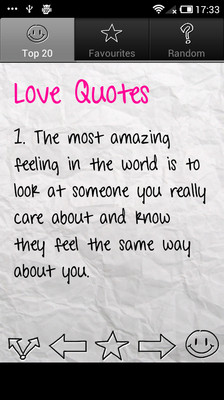 17:33
Top 20 Favourites Random
Love Quotes
1. The most amazing
feeling in the world is to
look at someone you really
care about and know
they feel the same way
about you.